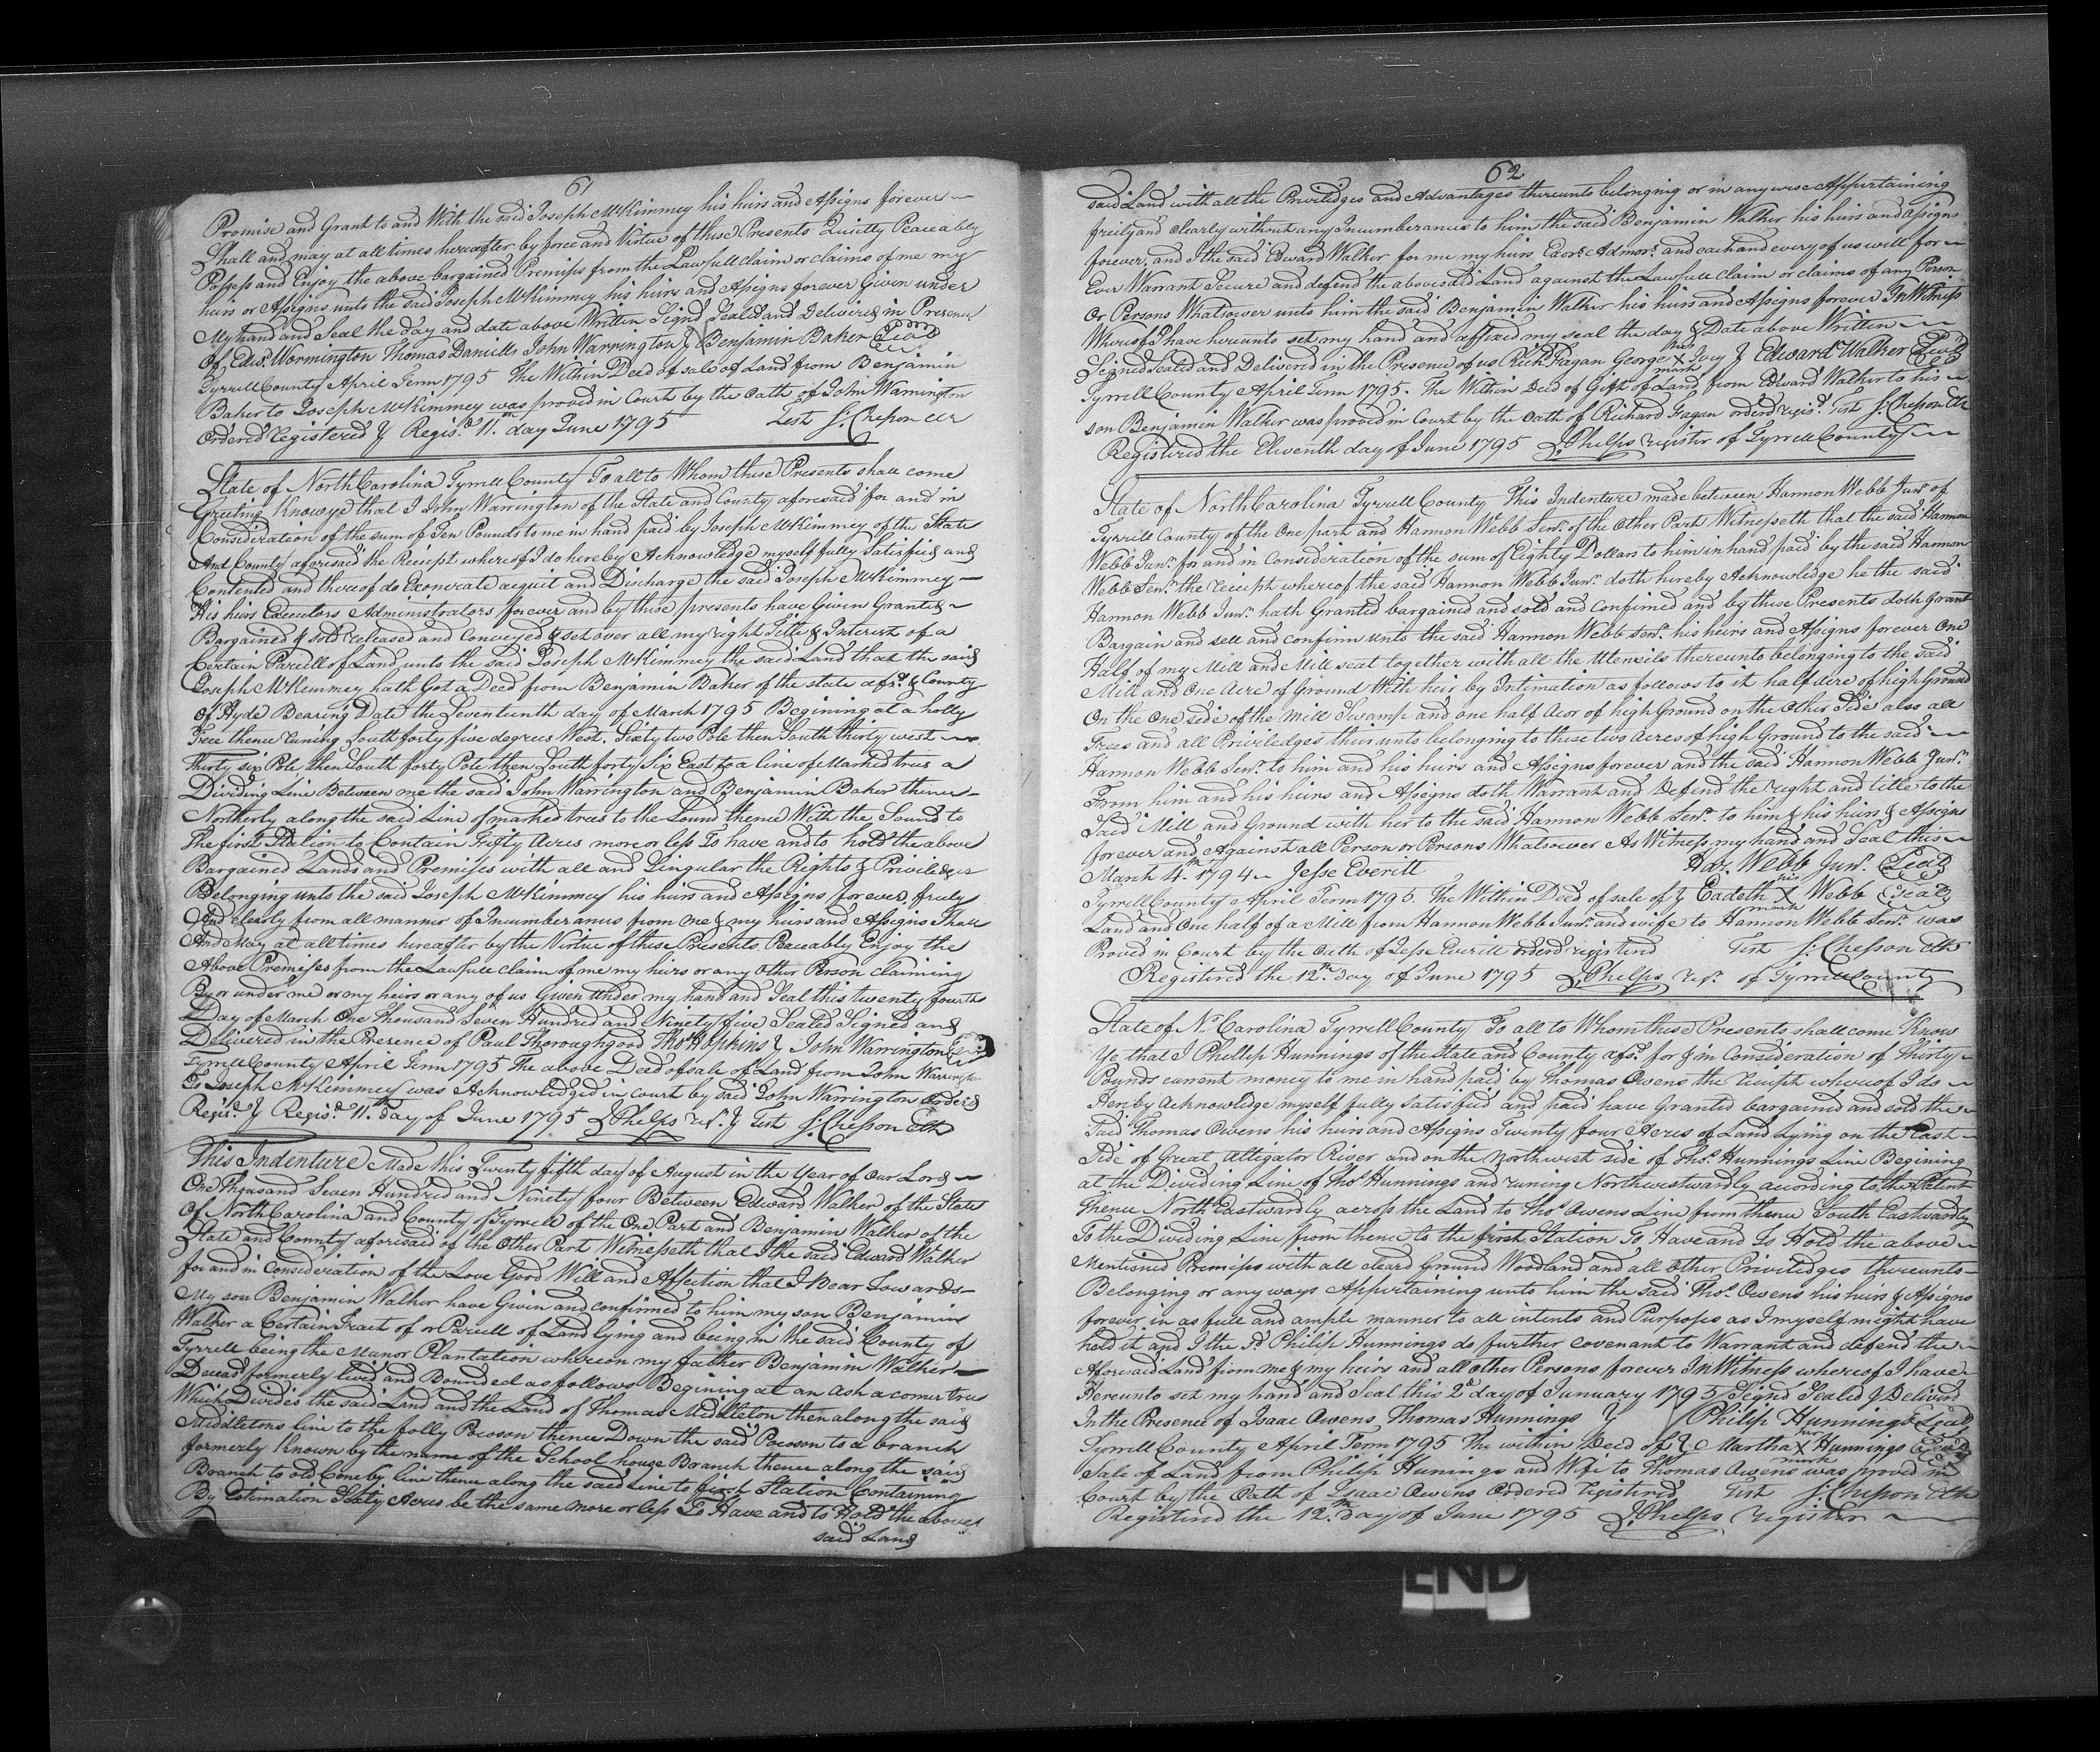 61
Promise and Grant to and With the said Joseph McKimmey his heirs and Assigns forever
Shall and may at all times hereafter by force and Virtue of these Presents Quietly Peaceably
Possess and Enjoy the above bargained Premises from the Lawfull claim or claims of me my
heirs or Assigns unto the said Joseph McKimmey his heirs and Assigns forever Given under
My hand and Seal the day and date above Written Signd Seald and Delivered in Presence
Of Edwd. Wormington Thomas Daniells John Warrington } Benjamin Baker Seal
Tyrrell County April Term 1795 The Within Deed of sale of Land from Benjamin
Baker to Joseph McKimmey was proved in Court by the Oath of John Warrington
Ordered Registered & Regisd. 11th. day June 1795 Test J. Chesson Clk
State of North Carolina Tyrrell County To all to Whom these Presents shall come
Greeting Know ye that I John Warrington of the State and County aforesaid for and in
Consideration of the sum of Ten Pounds to me in hand paid by Joseph McKimmey of the State
And County aforesaid the Receipt whereof I do hereby Acknowledge myself fully Satisfied and
Contented and thereof do Exonerate acquit and Discharge the said Joseph McKimmey
His heirs Executors Administrators forever and by these presents have Given Granted
Bargained & sold released and Conveyed & set over all my right Title & Interest of a
Certain Parcell of Land unto the said Joseph McKimmey the said Land that the said
Joseph McKimmey hath Got a Deed from Benjamin Baker of the state afsd. & County
Of Hyde Bearing Date the Seventeenth day of March 1795 Begining at a holly
Tree thence runing South forty five degrees West. Sixty two Pole then South thirty west
Thirty six Pole, then South forty Pole then South forty Six East to a line of Marked trees a
Dividing Line Between me the said John Warrington and Benjamin Baker thence
Northerly along the said Line of marked trees to the Sound thence With the Sound to
The first Station to Contain Fifty Acres more or less To have and to hold the above
Bargained Lands and Premises with all and Singular the Rights & Priviledges
Belonging unto the said Joseph McKimmey his heirs and Assigns forever, freely
And clearly from all manner of Incumberances from me & my heirs and Assigns Shall
And May at all times hereafter by the Virtue of these Presents Peaceably Enjoy the
Above Premises from the Lawfull claim of me my heirs or any Other Person claiming
By or under me or my heirs or any of us Given Under my hand and Seal this twenty fourth
Day of March One Thousand Seven Hundred and Ninety five Sealed Signed and
Delivered in the Presence of Paul Thoroughgood Thos Hopkins } John Warrington
Tyrrell County April Term 1795 The above Deed of sale of Land from John Warrington
To Joseph McKimmey was Acknowledged in court by said John Warrington Orderd
Regisd. & Regisd. 11th. day of June 1795 J. Phelps Regr. & Test J. Chesson Clk
This Indenture Made this Twenty fifth day of August in the Year of Our Lord
One Thousand Seven Hundred and Ninety four Between Edward Walker of the State
Of North Carolina and County of Tyrrell of the One Part and Benjamin Walker of the
State and County aforesaid of the Other Part Witnesseth that I the said Edward Walker
for and in Consideration of the Love Good Will and Affection that I Bear Towards
My son Benjamin Walker have Given and confirmed to him my son Benjamin
Walker a Certain Tract of or Parcell of Land lying and being in the said County of
Tyrrell being the Manor Plantation whereon my father Benjamin Walker
Deceasd formerly lived and Bounded as follows Begining at an Ash a corner tree
Which Divides the said Land and the Land of Thomas Middleton then along the said
Middletons line to the folly Pocoson thence Down the said Pocoson to a branch
formerly Known by the name of the School house Branch thence along the said
Branch to old Coneby line thence along the said line to first Station Containing
By Estimation Sixty Acres be the same more or less To Have and to Hold the above
said Land
62
said Land with all the Priviledges and Advantages thereunto belonging or in any wise Appertaining
freely and clearly without any Incumberances to him the said Benjamin Walker his heirs and assigns
forever, and I the said Edward Walker for me my heirs Exors. Admors. and each and every of us will for
Ever Warrant Secure and defend the abovesaid Land against the Lawfull Claim or claims of any Person
Or Persons Whatsover unto him the said Benjamin Walker his heirs and Assigns forever In Witness
Whereof I have hereunto set my hand and affixed my seal the day & Date above Written
Signed Sealed and Delivered in the Presence of us Richd. Fagan George his X mark Ivey } Edward Walker Seal
Tyrrell County April Term 1795. The Within Deed of Gift of Land from Edward Walker to his
son Benjamin Walker was proved in Court by the Oath of Richard Fagan orderd regisd. Test J. Chesson Clk
Registered the Eleventh day of June 1795 J. Phelps register of Tyrrell County
State of North Carolina Tyrrell County This Indenture made between Harmon Webb Junr. of
Tyrrell County of the One part and Harmon Webb Senr. of the Other Part Witnesseth that the said Harmon
Webb Junr. for and in Consideration of the sum of Eighty Dollars to him in hand paid by the said Harmon
Webb Senr. the reciept whereof the said Harmon Webb Junr. doth hereby Acknowledge he the said
Harmon Webb Junr. hath Granted bargained and sold and Confirmed and by these Presents doth Grant
Bargain and sell and confirm unto the said Harmon Webb Senr. his heirs and Assigns forever One
Half of my Mill and Mill seat together with all the Utensils thereunto belonging to the said
Mill and One Acre of Ground With heir by Intimation as follows to it half Acre of high Ground
On the One side of the Mill Swamp and one half Acor of high Ground on the Other Side also all
Trees and all Priviledges theirunto belonging to these two Acres of high Ground to the said
Harmon Webb Senr. to him and his heirs and Assigns forever and the said Harmon Webb Junr.
From him and his heirs and Assigns doth Warrant and Defend the right and title to the
Said Mill and Ground with her to the said Harmon Webb Senr. to him & his heirs & Assigns
forever and Against all Person or Persons Whatsoever As Witness my hand and Seal this
March 4th. 1794 Jesse Everitt Har. Webb Junr. Seal
Tyrrell County April Term 1795. The Within Deed of sale of } Eadeth his X mark Webb Seal
Land and One half of a Mill from Harmon Webb Junr. and wife to Harmon Webb Senr. was
Proved in Court by the Oath of Jesse Everitt orderd registerd Test J. Chesson Clk
Registered the 12th. Day of June 1795 J. Phelps Regr. of Tyrrell County
State of No. Carolina Tyrrell County To all to Whom these Presents shall come Know
Ye that I Phillip Hunnings of the State and County afsd. for & in Consideration of Thirty
Pounds current money to me in hand paid by Thomas Owens the reciept whereof I do
Hereby Acknowledge myself fully satisfied and paid have Granted bargained and sold the
Said Thomas Owens his heirs and Assigns Twenty four Acres of Land Lying on the East
Side of Great Alligator River and on the Northwest side of Thos. Hunnings Line Begining
at the Dividing Line of Thos. Hunnings and runing Northwestwardly acording to the Patent
Thence North Eastwardly across the Land to Thos. Owens Line from thence South Eastwardly
To the Dividing Line from thence to the first Station To Have and To Hold the above
Mentioned Premises with all cleard Ground Woodland and all Other Priviledges thereunto
Belonging or any ways Appertaining unto him the said Thos. Owens his heirs & Assigns
forever in as full and ample manner to all intents and Purposes as I myself might have
hold it and I the sd. Philip Hunnings do further Covenant to Warrant and defend the
Aforesaid Land from me & my heirs and all Other Persons forever In Witness whereof I have
Hereunto set my hand and Seal this 2d. day of January 1795 Signd Sealed & Deliverd
In the Presence of Isaac Owens Thomas Hunnings } Philip Hunnings Seal
Tyrrell County April Term 1795 The within Deed of } Martha her X mark Hunnings Seal
Sale of Land from Philip Hunings and Wife to Thomas Owens was proved in
Court by the Oath of Isaac Owens Ordered registered Test J. Chesson Clk
Registered the 12th. day of June 1795 J. Phelps register
END